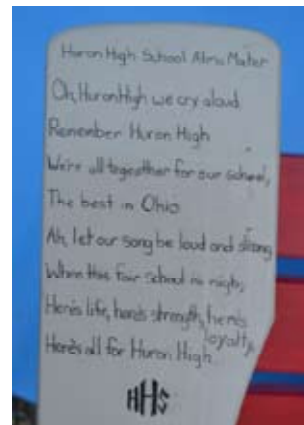 Huron High School Alma Mater
Oh, Huron High we cry aloud
Remember Huron High
We're all together for our school,
The best in Ohio
Ah, let our song be loud and strong
When this fair school is nigh,
Here's life, here's strength, here's
loyalty,
Here's all for Huron High
HHS